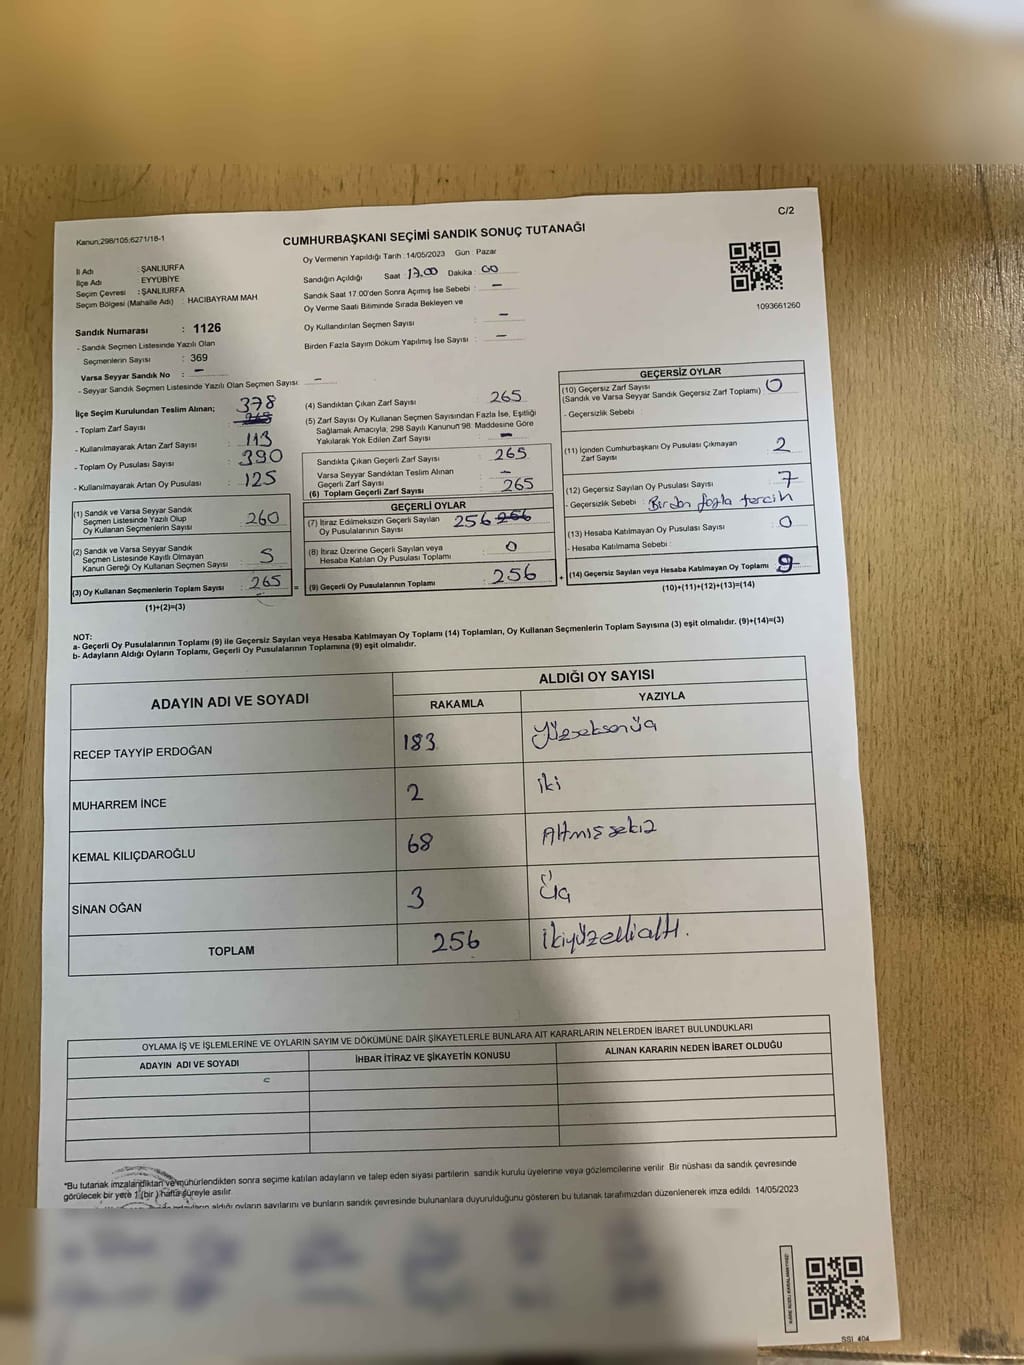 C/2
Kanun;298/105;6271/18-1
CUMHURBAŞKANI SEÇİMİ SANDIK SONUÇ TUTANAĞI
İl Adı : ŞANLIURFA
İlçe Adı EYYÜBİYE
Seçim Çevresi : ŞANLIURFA
Seçim Bölgesi (Mahalle Adı) : HACIBAYRAM MAH
Oy Vermenin Yapıldığı Tarih : 14/05/2023 Gün : Pazar
Sandığın Açıldığı Saat : 17.00 Dakika : 00
Sandık Saat 17:00'den Sonra Açımış İse Sebebi : –
Oy Verme Saati Bitiminde Sırada Bekleyen ve
Oy Kullandırılan Seçmen Sayısı : –
Birden Fazla Sayım Döküm Yapılmış İse Sayısı : –
1093661260
Sandık Numarası : 1126
- Sandık Seçmen Listesinde Yazılı Olan
Seçmenlerin Sayısı : 369
Varsa Seyyar Sandık No : –
- Seyyar Sandık Seçmen Listesinde Yazılı Olan Seçmen Sayısı : –
İlçe Seçim Kurulundan Teslim Alınan;
- Toplam Zarf Sayısı : 378
- Kullanılmayarak Artan Zarf Sayısı : 113
- Toplam Oy Pusulası Sayısı : 390
- Kullanılmayarak Artan Oy Pusulası : 125
(1) Sandık ve Varsa Seyyar Sandık
Seçmen Listesinde Yazılı Olup
Oy Kullanan Seçmenlerin Sayısı : 260
(2) Sandık ve Varsa Seyyar Sandık
Seçmen Listesinde Kayıtlı Olmayan
Kanun Gereği Oy Kullanan Seçmen Sayısı : 5
(3) Oy Kullanan Seçmenlerin Toplam Sayısı : 265
(1)+(2)=(3)
(4) Sandıktan Çıkan Zarf Sayısı : 265
(5) Zarf Sayısı Oy Kullanan Seçmen Sayısından Fazla İse, Eşitliği
Sağlamak Amacıyla; 298 Sayılı Kanunun 98. Maddesine Göre
Yakılarak Yok Edilen Zarf Sayısı : –
Sandıkta Çıkan Geçerli Zarf Sayısı : 265
Varsa Seyyar Sandıktan Teslim Alınan
Geçerli Zarf Sayısı : –
(6) Toplam Geçerli Zarf Sayısı : 265
GEÇERLİ OYLAR
(7) İtiraz Edilmeksizin Geçerli Sayılan
Oy Pusulalarının Sayısı : 256 256
(8) İtiraz Üzerine Geçerli Sayılan veya
Hesaba Katılan Oy Pusulası Toplamı : 0
(9) Geçerli Oy Pusulalarının Toplamı : 256
GEÇERSİZ OYLAR
(10) Geçersiz Zarf Sayısı
(Sandık ve Varsa Seyyar Sandık Geçersiz Zarf Toplamı) : 0
- Geçersizlik Sebebi :
(11) İçinden Cumhurbaşkanı Oy Pusulası Çıkmayan
Zarf Sayısı : 2
(12) Geçersiz Sayılan Oy Pusulası Sayısı : 7
- Geçersizlik Sebebi : Birden fazla tercih
(13) Hesaba Katılmayan Oy Pusulası Sayısı : 0
- Hesaba Katılmama Sebebi :
(14) Geçersiz Sayılan veya Hesaba Katılmayan Oy Toplamı : 9
(10)+(11)+(12)+(13)=(14)
NOT:
a- Geçerli Oy Pusulalarının Toplamı (9) ile Geçersiz Sayılan veya Hesaba Katılmayan Oy Toplamı (14) Toplamları, Oy Kullanan Seçmenlerin Toplam Sayısına (3) eşit olmalıdır. (9)+(14)=(3)
b- Adayların Aldığı Oyların Toplamı, Geçerli Oy Pusulalarının Toplamına (9) eşit olmalıdır.
ADAYIN ADI VE SOYADI
ALDIĞI OY SAYISI
RAKAMLA YAZIYLA
RECEP TAYYİP ERDOĞAN 183 Yüzseksenüç
MUHARREM İNCE 2 iki
KEMAL KILIÇDAROĞLU 68 Altmışsekiz
SİNAN OĞAN 3 Üç
TOPLAM 256 ikiyüzellialtı.
OYLAMA İŞ VE İŞLEMLERİNE VE OYLARIN SAYIM VE DÖKÜMÜNE DAİR ŞİKAYETLERLE BUNLARA AİT KARARLARIN NELERDEN İBARET BULUNDUKLARI
ADAYIN ADI VE SOYADI İHBAR İTİRAZ VE ŞİKAYETİN KONUSU ALINAN KARARIN NEDEN İBARET OLDUĞU
*Bu tutanak imzalandıktan ve mühürlendikten sonra seçime katılan adayların ve talep eden siyasi partilerin sandık kurulu üyelerine veya gözlemcilerine verilir. Bir nüshası da sandık çevresinde
görülecek bir yere 1 (bir) hafta süreyle asılır.
aldığı oyların sayılarını ve bunların sandık çevresinde bulunanlara duyurulduğunu gösteren bu tutanak tarafımızdan düzenlenerek imza edildi. 14/05/2023
SSI_404